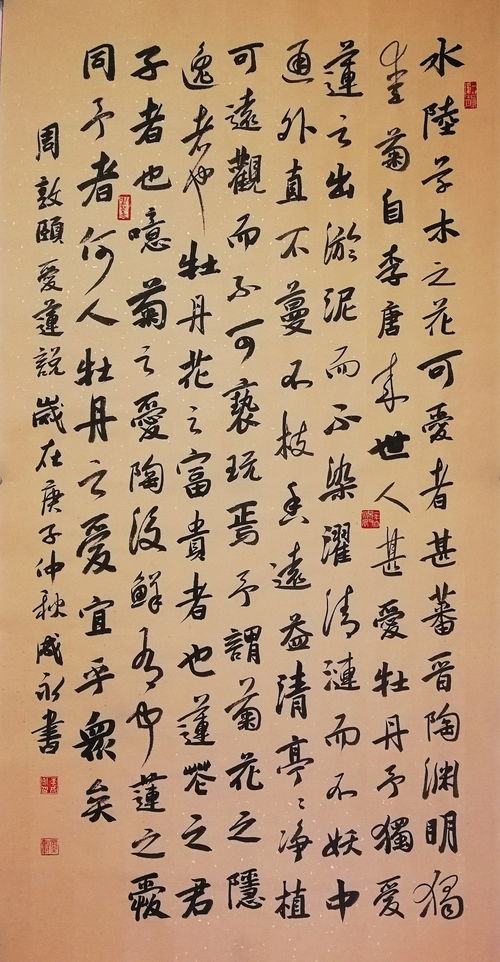 水陸草木之花可愛者甚蕃晋陶渊明獨
愛菊自李唐来世人甚愛牡丹予獨愛
蓮之出淤泥而不染濯清漣而不妖中
通外直不蔓不枝香遠益清亭〻净植
可遠觀而不可亵玩焉予謂菊花之隱
逸者也牡丹花之富貴者也蓮花之君
子者也噫菊之愛陶後鮮有聞蓮之愛
同予者何人牡丹之愛宜乎眾矣
周敦頤愛蓮説歲在庚子仲秋成永書